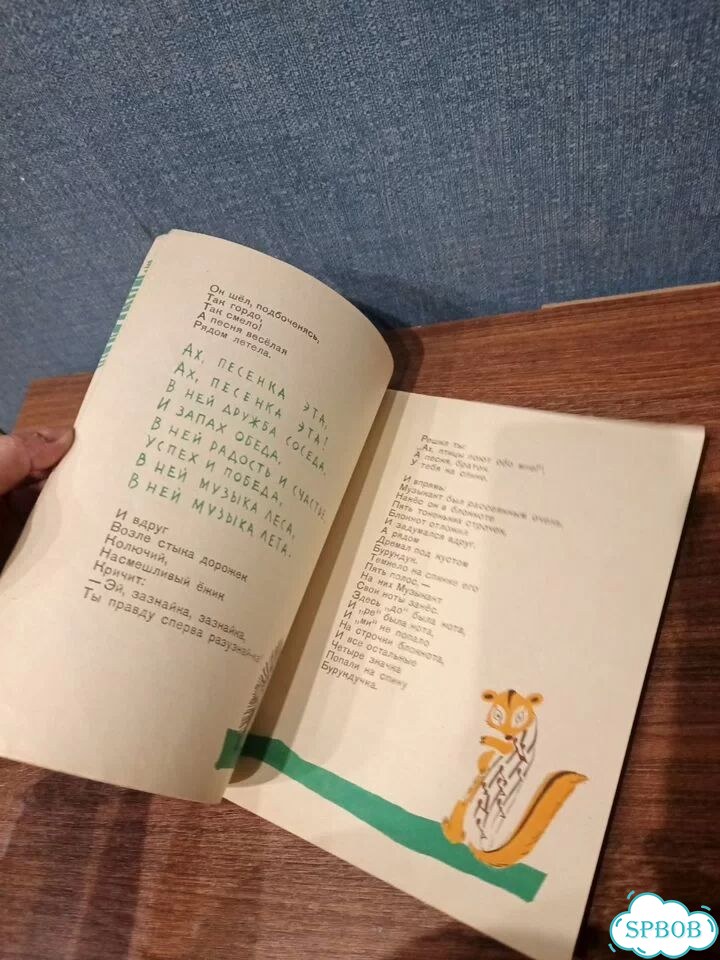 Он шёл, подбоченясь,
Так гордо,
Так смело!
А песня весёлая
Рядом летела.
АХ, ПЕСЕНКА ЭТА,
АХ, ПЕСЕНКА ЭТА!
В НЕЙ ДРУЖБА СОСЕДА,
И ЗАПАХ ОБЕДА,
В НЕЙ РАДОСТЬ И СЧАСТЬЕ,
УСПЕХ И ПОБЕДА,
В НЕЙ МУЗЫКА ЛЕСА,
В НЕЙ МУЗЫКА ЛЕТА.
И вдруг
Возле стыка дорожек
Колючий,
Насмешливый ёжик
Кричит:
— Эй, зазнайка, зазнайка,
Ты правду сперва разузнай-ка!
Решил ты:
„Ах, птицы поют обо мне!“,
А песня, браток,
У тебя на спине.
И впрямь:
Музыкант был рассеянным очень,
Нанёс он в блокноте
Пять тоненьких строчек,
Блокнот отложил
И задумался вдруг.
А рядом
Дремал под кустом
Бурундук.
Темнело на спинке его
Пять полос, —
На них Музыкант
Свои ноты занёс.
Здесь „до“ была нота,
И „ре“ была нота,
И „ми“ не попало
На строчки блокнота,
И все остальные
Четыре значка
Попали на спину
Бурундучка.
SPBOB